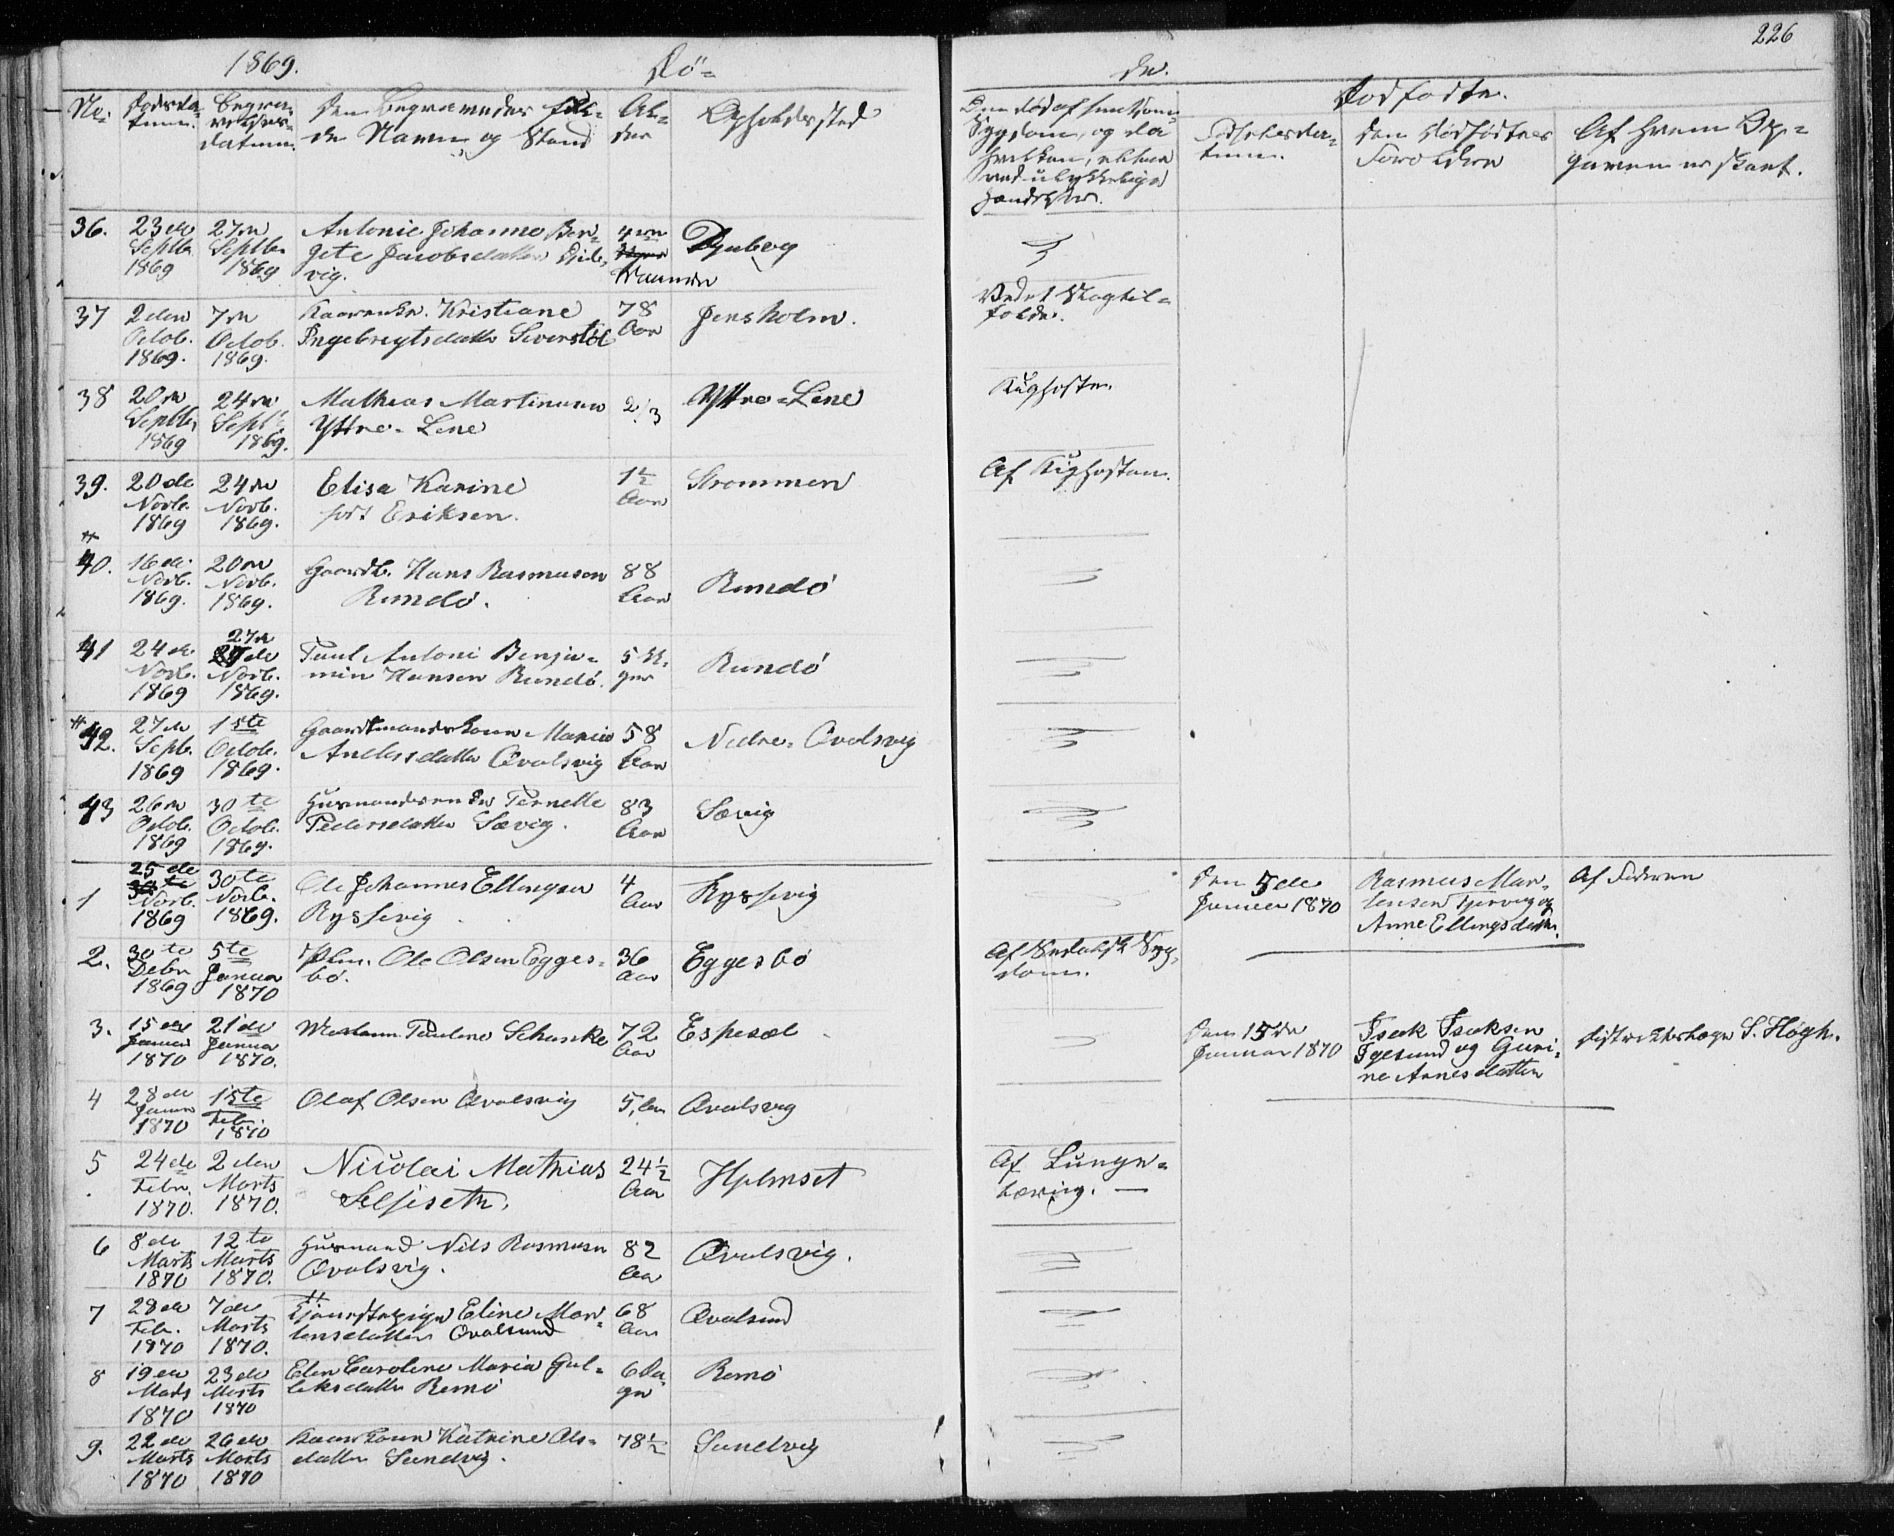 226
1869.
Dö=
de.
No.
Dødsda=
tum.
Begra=
velses=
datum.
Den Begravedes ful=
de Navn og Stand
Al=
der
Opholdssted
Sygdom, og da
hvilken, eller
ved ulykkelig
Dødfødte.
Fødselsda=
tum.
Den Dødfødtes
Forældre
Af hvem Op=
gaven er skeet.
36.
23de
Septbr
1869
27de
Septbr
1869
Antonie Johanne Ber=
gete Jacobsdatter
vig.
4re
Maaneder
Djubvig
37
2den
Octob.
1869.
7de
Octob.
1869.
Kaarenke. Kristiane
Ingebregtsdatter Severstøl
78
Aar
Jensholm.
Ved et Slagtil=
fælde.
38
20de
Septbr
1869
24de
Septb.
1869.
Mathias Martinusen
Yttre-Lene
2/3
Yttre-Lene
Kighoste.
39.
20de
Novb.
1869
24de
Novb.
1869.
Elisa Karine
født Eriksen.
1½
Aar
Strømmen
Af Kighosten.
40.
16de
Novb.
1869.
20de
Novb.
1869.
Gaardb. Hans Rasmusen
Rundö.
88
Aar
Rundö
41
24de
Novb.
1869
27de
Novb.
1869.
Paul Antoni Benja=
min Hansen Rundö.
5 U=
ger
Rundö
42.
27de
Septb.
1869
1ste
Octob.
1869.
Gaardmandskone Marie
Andersdatter Qvalsvig
58
Aar
Nedre-Qvalsvig
43
26de
Octob.
1869
30te
Octob.
1869.
Husmandsenke Pernelle
Pedersdatter Sævig.
83
Aar
Sævig
1
25de
Novb.
1869
30te
Novb.
1869.
Ole Johannes Ellingsen
Rysjevig
4
Aar
Rysjevig
Den 5de
Januar 1870
Rasmus Mar=
tensen Tjervig og
Anne Ellingsdatter.
Af Faderen
2.
30te
Debr
1869
5te
Januar
1870
Ole Olsen Egges=
bö.
36
Aar
Eggesbö
Af Syg=
dom.
3.
15de
Januar
1870
21de
Januar
1870.
Madam Pauline Schanke
72
Aar
Espesæt
Den 15de
Januar 1870
Isak Isaksen
Igesund og Guri=
ne Arnesdatter
Distriktslæge S. Høgh.
4
28de
Januar
1870
1ste
Feb.
1870
Olaf Olsen Qvalsvig
5
Qvalsvig
5
24de
Febr.
1870.
2den
Marts
1870.
Nicolai Mathias
Seljeseth.
24½
Aar
Hjelmset
Af Lunge=
tæring. —
6
8de
Marts
1870
12te
Marts
1870.
Husmand Nils Rasmusen
Qvalsvig.
82
Aar
Qvalsvig.
7
28de
Feb.
1870
7de
Marts
1870.
Eline Mor=
tensdatter Qvalsund
68
Aar
Qvalsund
8
19de
Marts
1870
23de
Marts
1870
Elen Caroline Maria Gul=
leksdatter Remö
6 Da=
ge
Remö
9.
22de
Marts
1870
26de
Marts
1870
Kaarkone Katrine Ols=
datter Sandvig.
78½
Sandvig